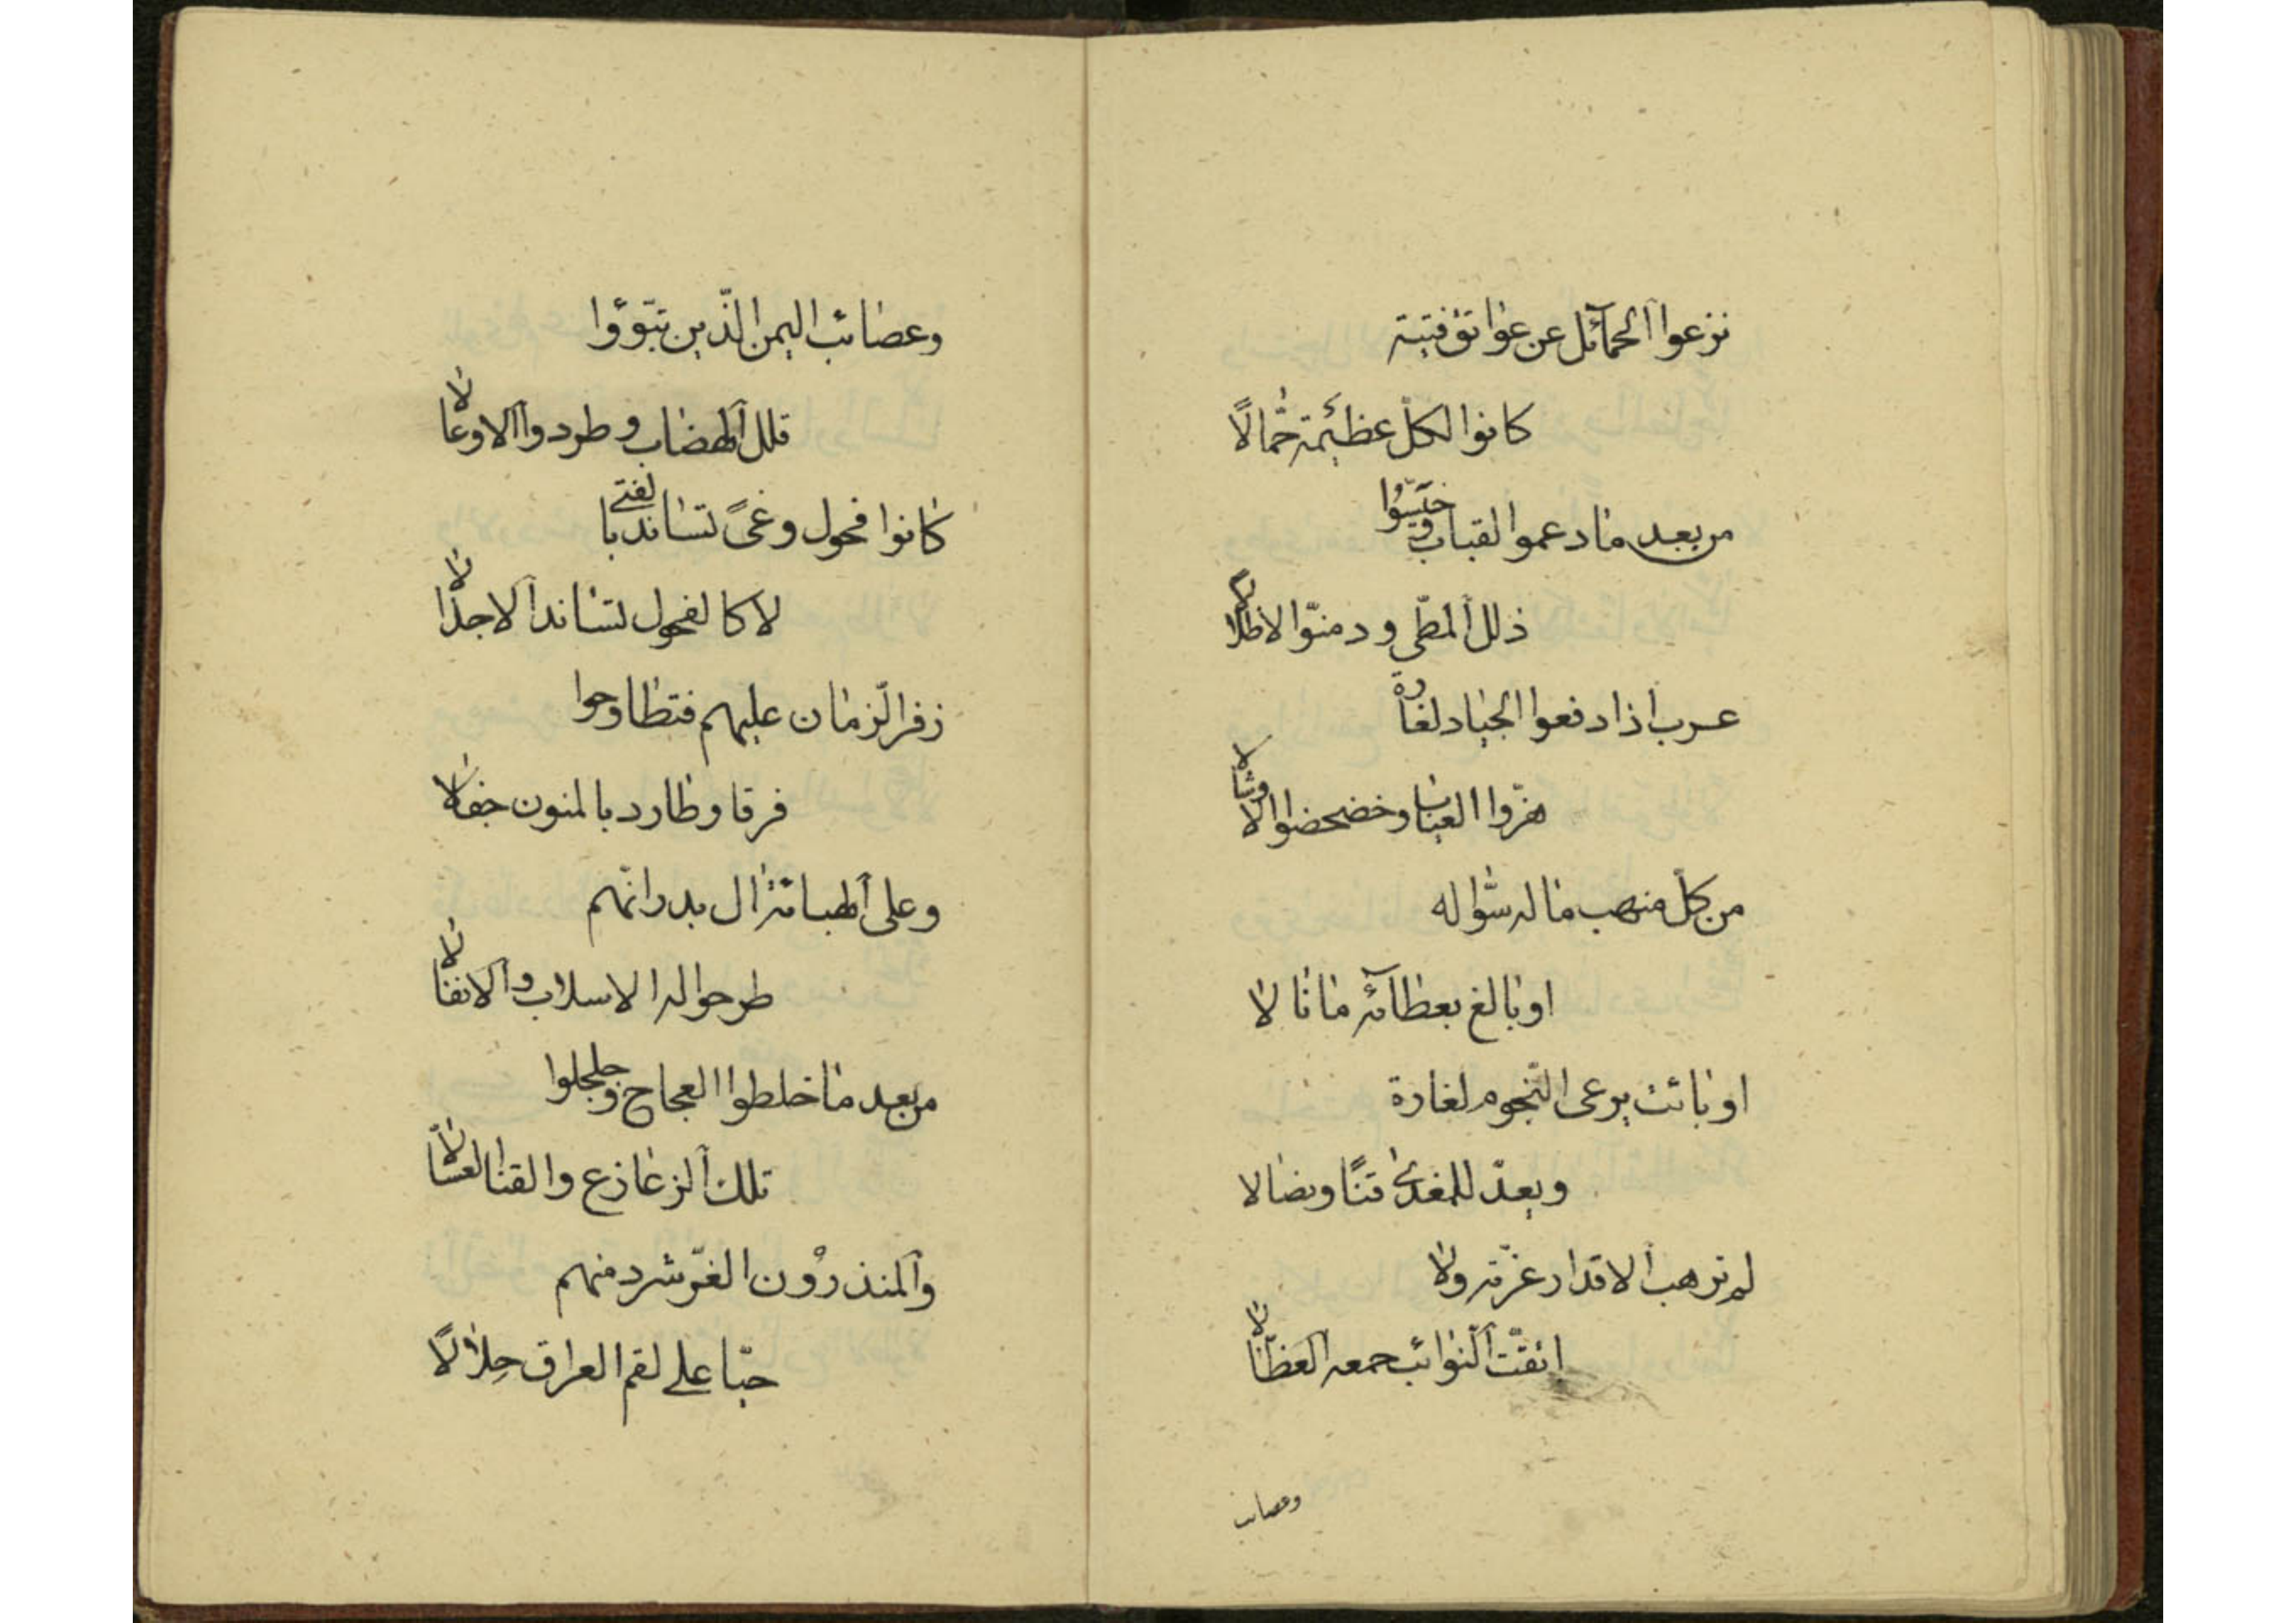 نزعوا الحمآئل عن عواتق فتية
كانوا لكلّ عظيمة حمّالًا
من بعد ما دعموا القباب وخيّسوا
ذلل المطيّ ودمنوّا الاطلالا
عرب اذا دفعوا الجياد لغارة
هزّوا العباب وخضخضوا الاوشالا
من كلّ منهب ماله سؤّاله
او بالغ بعطآئه ما نالا
او بائت يرعى النّجوم لغارة
ويعدّ للمغدى قنًا ونضالا
لم ترهب الاقدار غرّته ولا
اتقّت النّوائب جمعه العظّالا
وعصايب
وعصائب اليمن الّذين تبّوؤا
قلل الهضاب وطردوا الاوعالا
كانوا فحول وغىً تساند بالفتى
لا كالفحول تساند الاجذالا
زفر الزّمان عليهم فتطاوحوا
فرقا وطارد بالمنون جفالا
وعلى الهبائة ال بدر انّهم
طرحوا له الاسلاب والانفالا
من بعد ما خلطوا العجاج وجلجلوا
تلك الزعازع والقنا العسّالا
والمنذرون الغرّ شرد منهم
حيّا على لقم العراق حِلالًا